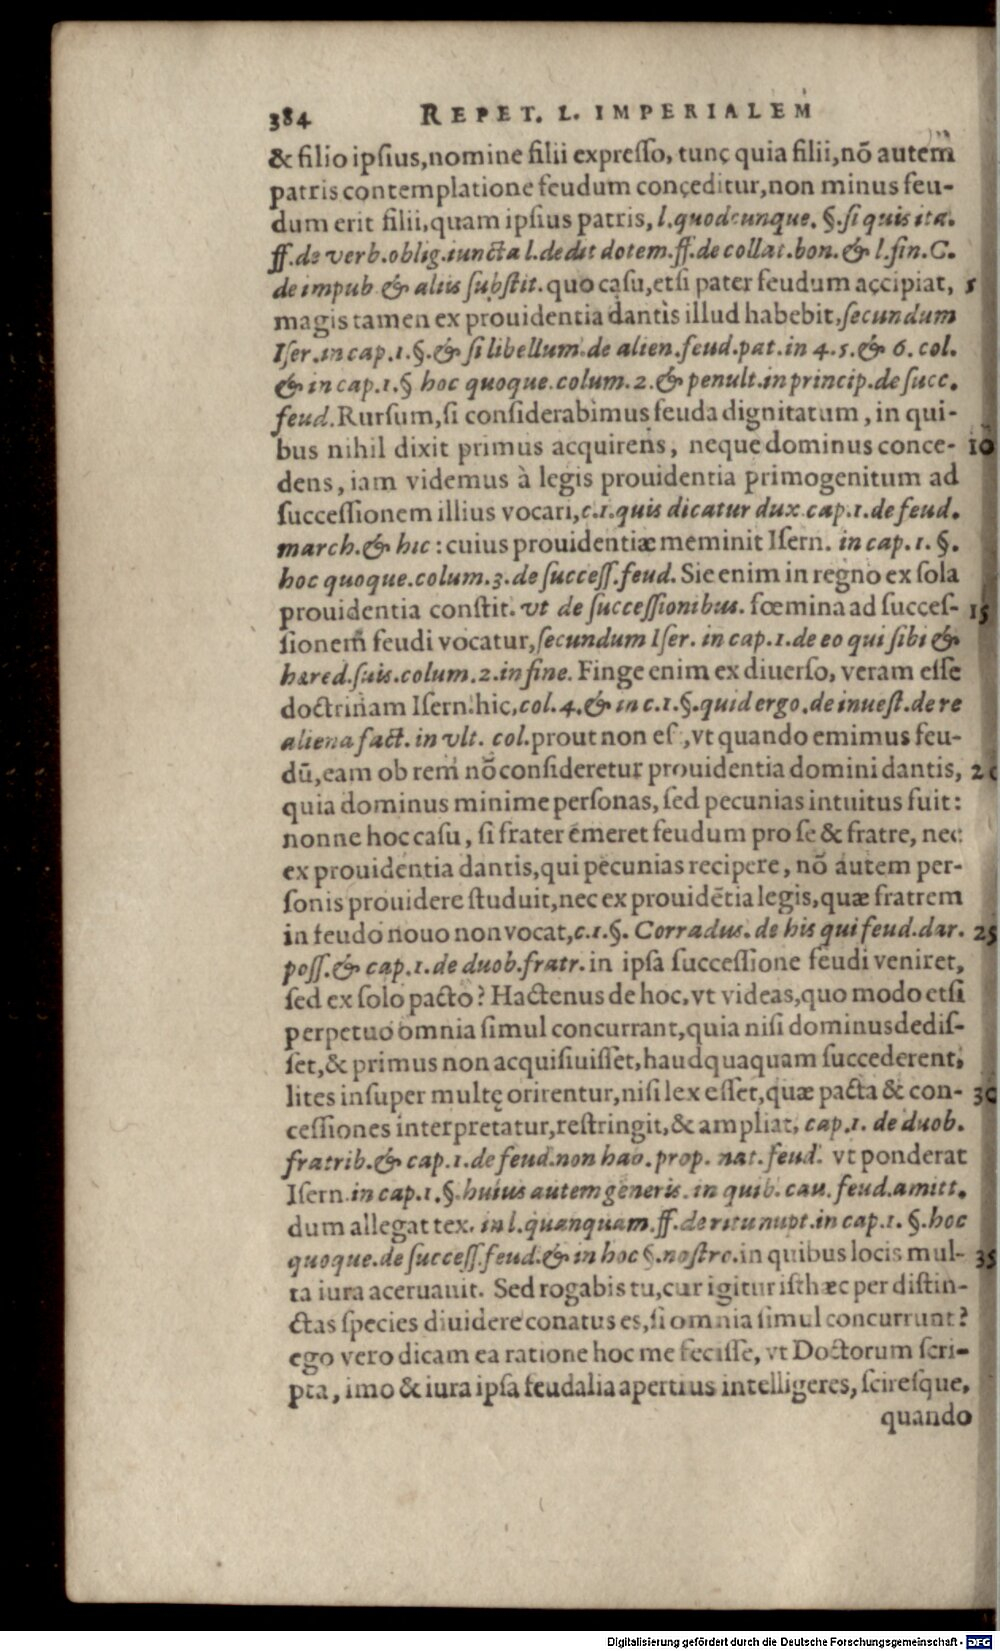 384 REPET. L. IMPERIALEM
& filio ipsius, nomine filii expresso, tunc quia filii, nō autem
patris contemplatione feudum conceditur, non minus feu-
dum erit filii, quam ipsius patris, l. quodcunque. §. si quis ita.
ff. de verb. oblig. iuncta l. dedit dotem. ff. de collat. bon. & l. fin. C.
de impub & aliis substit. quo casu, etsi pater feudum accipiat, 5
magis tamen ex prouidentia dantis illud habebit, secundum
Iser. in cap. 1. §. & si libellum. de alien. feud. pat. in 4. 5. & 6. col.
& in cap. 1. § hoc quoque. colum. 2. & penult. in princip. de succ.
feud. Rursum, si considerabimus feuda dignitatum, in qui-
bus nihil dixit primus acquirens, neque dominus conce- 10
dens, iam videmus à legis prouidentia primogenitum ad
successionem illius vocari, c. 1. quis dicatur dux cap. 1. de feud.
march. & hic: cuius prouidentiæ meminit Isern. in cap. 1. §.
hoc quoque. colum. 3. de success. feud. Sic enim in regno ex sola
prouidentia constit. vt de successionibus. fœmina ad succes- 15
sionem feudi vocatur, secundum Iser. in cap. 1. de eo qui sibi &
hæred. suis. colum. 2. in fine. Finge enim ex diuerso, veram esse
doctrinam Isern. hic, col. 4. & in c. 1. §. quid ergo. de inuest. de re
aliena fact. in vlt. col. prout non es, vt quando emimus feu-
dū, eam ob rem nō consideretur prouidentia domini dantis, 20
quia dominus minime personas, sed pecunias intuitus fuit:
nonne hoc casu, si frater emeret feudum pro se & fratre, nec
ex prouidentia dantis, qui pecunias recipere, nō autem per-
sonis prouidere studuit, nec ex prouidētia legis, quæ fratrem
in feudo nouo non vocat, c. 1. §. Corradus. de his qui feud. dar. 25
poss. & cap. 1. de duob. fratr. in ipsa successione feudi veniret,
sed ex solo pacto? Hactenus de hoc, vt videas, quo modo etsi
perpetuo omnia simul concurrant, quia nisi dominus dedis-
set, & primus non acquisiuisset, haudquaquam succederent,
lites insuper multę orirentur, nisi lex esset, quæ pacta & con- 30
cessiones interpretatur, restringit, & ampliat, cap. 1. de duob.
fratrib. & cap. 1. de feud. non hab. prop. nat. feud. vt ponderat
Isern. in cap. 1. §. huius autem generis. in quib. cau. feud. amitt.
dum allegat tex. in l. quanquam. ff. de ritu nupt. in cap. 1. §. hoc
quoque. de success. feud. & in hoc §. nostro. in quibus locis mul- 35
ta iura aceruauit. Sed rogabis tu, cur igitur isthæc per distin-
ctas species diuidere conatus es, si omnia simul concurrunt?
ego vero dicam ea ratione hoc me fecisse, vt Doctorum scri-
pta, imo & iura ipsa feudalia apertius intelligeres, sciresque,
quando
Digitalisierung gefördert durch die Deutsche Forschungsgemeinschaft - DFG